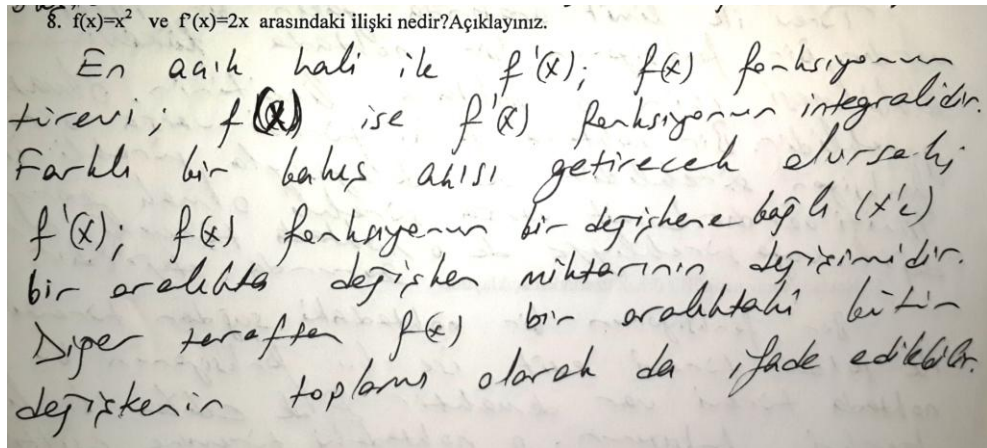 8. f(x)=x² ve f'(x)=2x arasındaki ilişki nedir?Açıklayınız.
En açık hali ile f'(x); f(x) fonksiyonun
türevi; f(x) ise f'(x) fonksiyonun integralidir.
Farklı bir bakış açısı getirecek olursak;
f'(x); f(x) fonksiyonun bir değişkene bağlı (x'e)
bir aralıkta değişken miktarının değişimidir.
Diğer taraftan f(x) bir aralıktaki bütün
değişkenin toplamı olarak da ifade edilebilir.